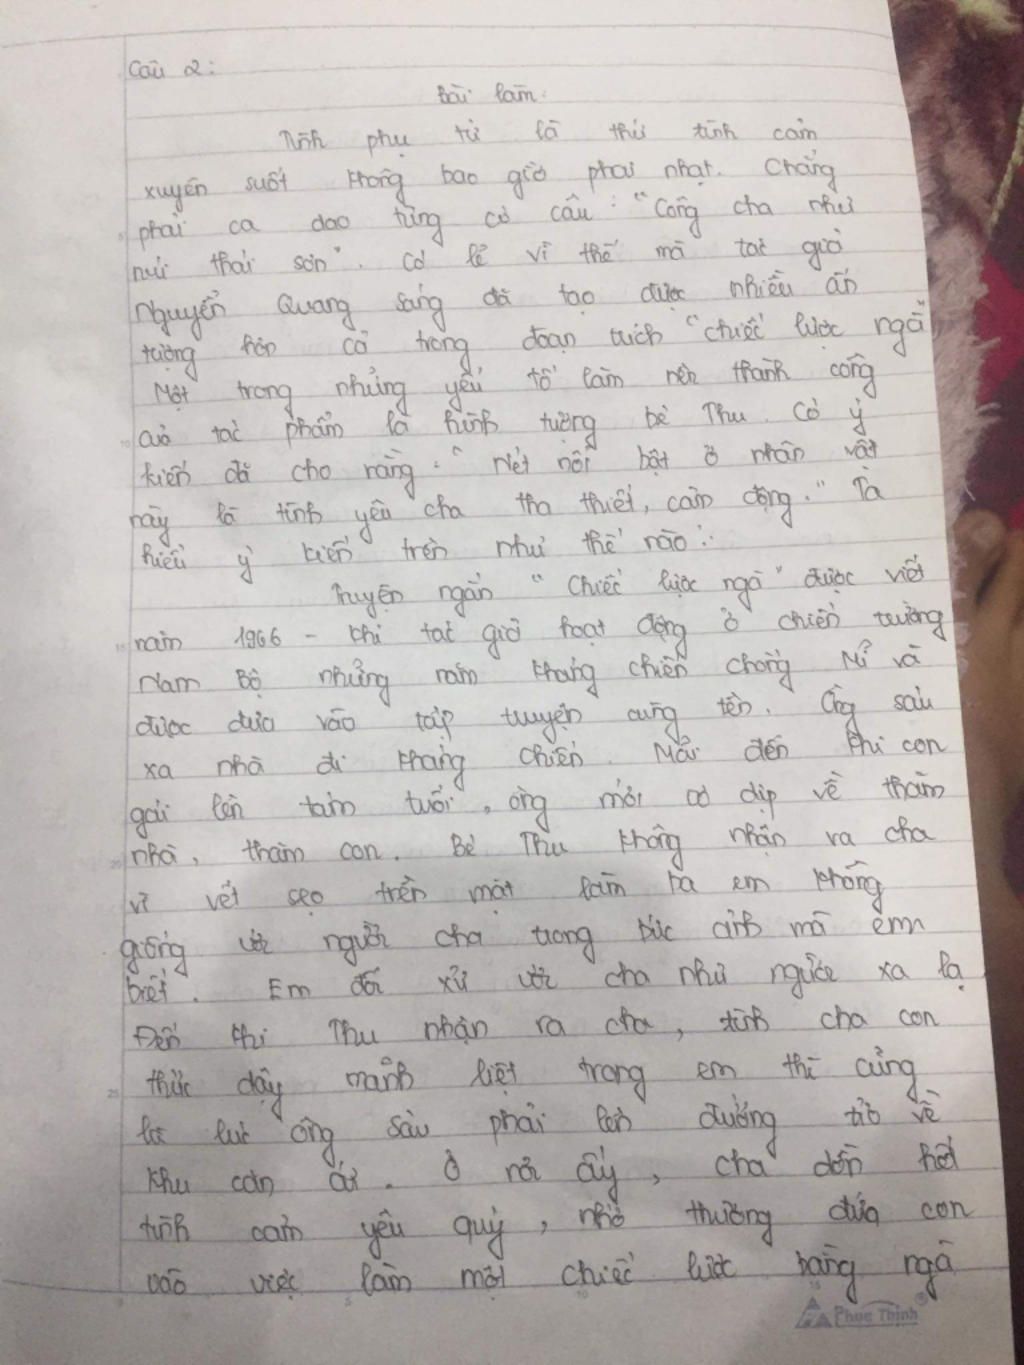 Câu 2:
Bài làm:
Tình phụ tử là thứ tình cảm
xuyên suốt không bao giờ phai nhạt. Chẳng
phải ca dao từng có câu: "Công cha như
núi thái sơn". Có lẽ vì thế mà tác giả
Nguyễn Quang Sáng đã tạo được nhiều ấn
tượng hơn cả trong đoạn trích "chiếc lược ngà"
Một trong những yếu tố làm nên thành công
của tác phẩm là hình tượng bé Thu. Có ý
kiến đã cho rằng: "Nét nổi bật ở nhân vật
này là tình yêu cha tha thiết, cảm động." Ta
hiểu ý kiến trên như thế nào:
Truyện ngắn "Chiếc lược ngà" được viết
năm 1966 - khi tác giả hoạt động ở chiến trường
Nam Bộ những năm kháng chiến chống Mĩ và
được đưa vào tập truyện cùng tên. Ông sáu
xa nhà đi kháng chiến. Mãi đến khi con
gái lên tám tuổi, ông mới có dịp về thăm
nhà, thăm con. Bé Thu không nhận ra cha
vì vết sẹo trên mặt làm ba em không
giống với người cha trong bức ảnh mà em
biết. Em đối xử với cha như người xa lạ
Đến khi Thu nhận ra cha, tình cha con
thức dậy mãnh liệt trong em thì cũng
là lúc ông Sáu phải lên đường trở về
khu căn cứ. Ở nơi ấy, cha dồn hết
tình cảm yêu quý, nhớ thương đứa con
vào việc làm một chiếc lược bằng ngà
Phuc Thinh